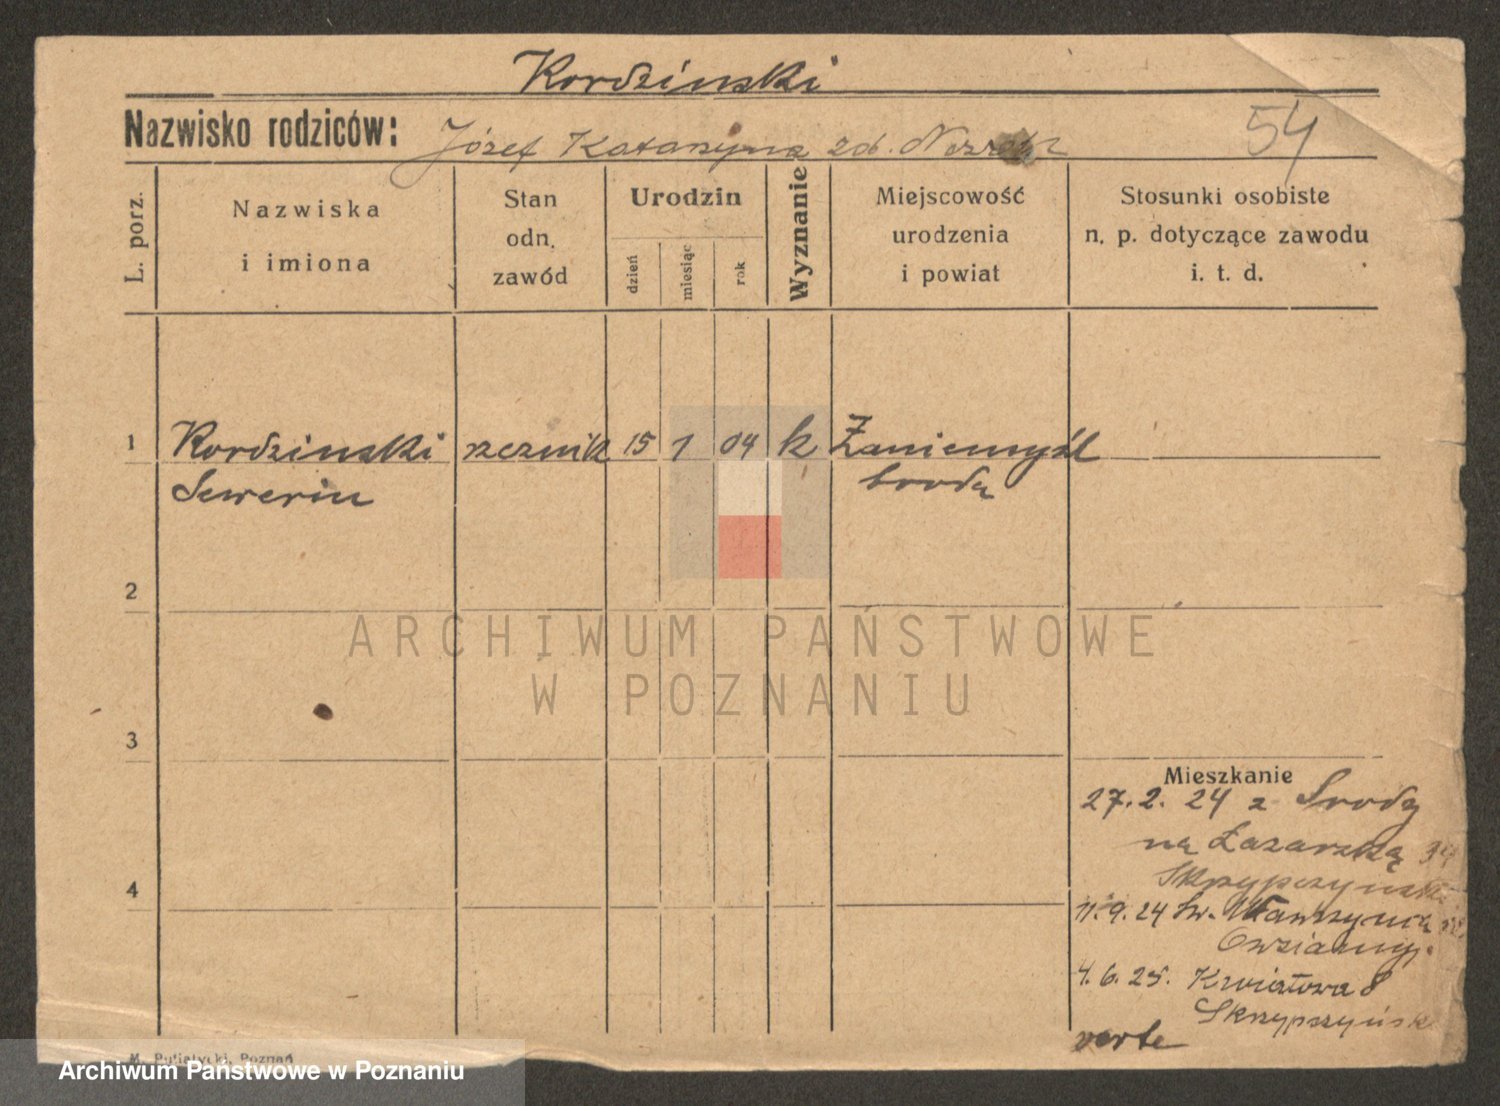 Kordzinski
Nazwisko rodziców: Józef Katarzyna zd.
54
L. porz.
Nazwiska
i imiona
Stan
odn.
zawód
Urodzin
dzień
miesiąc
rok
Wyznanie
Miejscowość
urodzenia
i powiat
Stosunki osobiste
n. p. dotyczące zawodu
i. t. d.
1 Kordzinski rzeznik 15 1 04 k Zaniemyśl
Sewerin
2
ARCHIWUM PAŃSTWOWE
W POZNANIU
3
Mieszkanie
27. 2. 24 z Srody
na Łazarską 34
4
11. 9. 24 Św. Wawrzyńca
4. 6. 25. Kwiatowa 8
verte
M. Putiatycki, Poznań
Archiwum Państwowe w Poznaniu